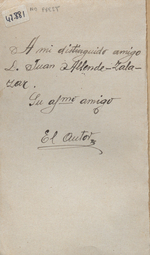 47.881
A mi distinguido amigo
D. Juan Allende-Zala-
zar.
Su afmo amigo
El autor